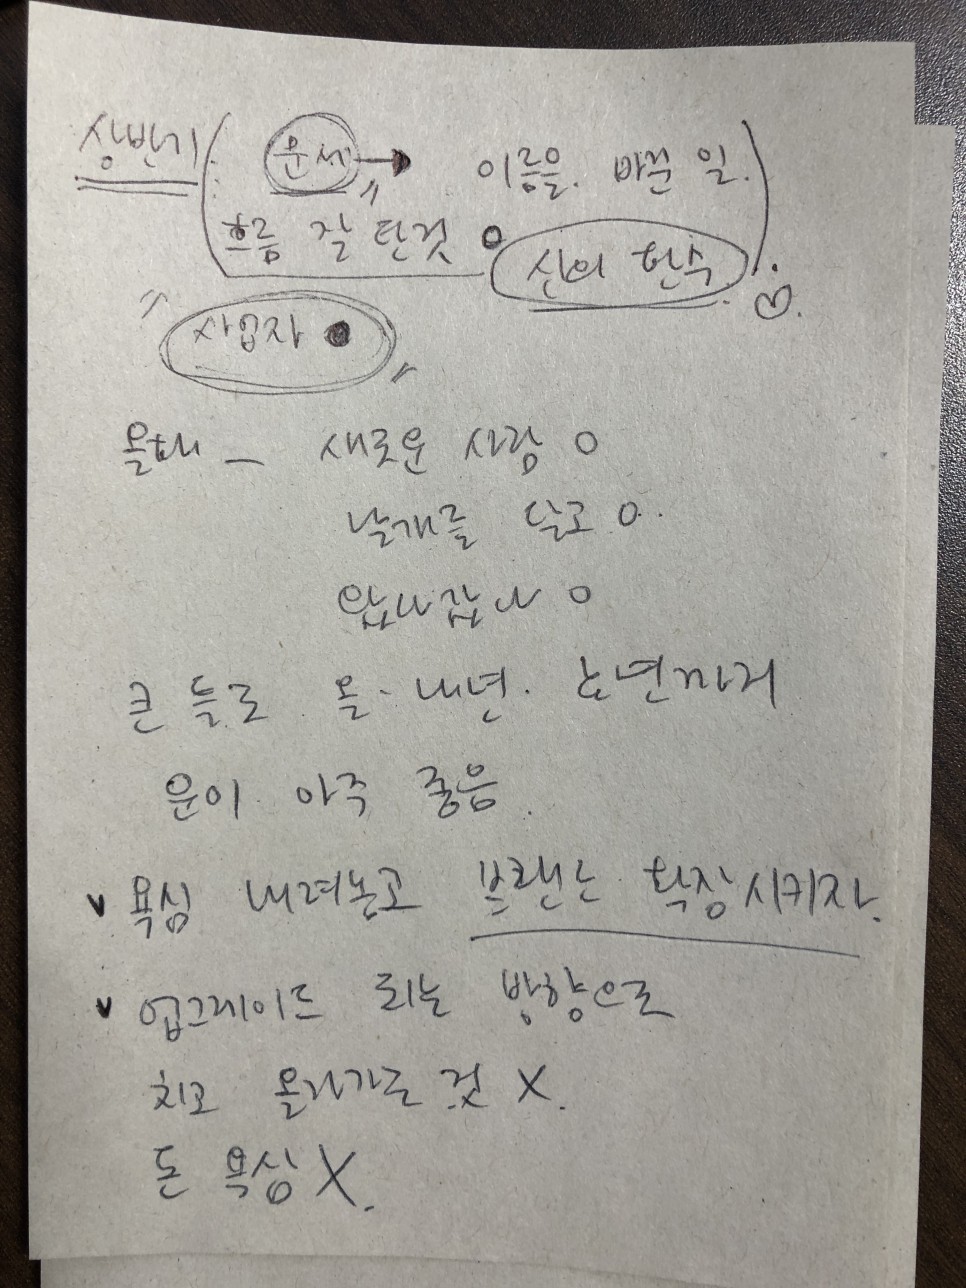 상반기 ( 운세 → 이름을 바꾼 일.
흐름 잘 탄것 신의 한수 ).
" 사업자 ● "
올해 — 새로운 사람 O
날개를 달고 O.
왔다갔다 O
큰 틀로 올. 내년. 노년까지
운이 아주 좋음.
v 욕심 내려놓고 브랜드 확장시키자.
v 업그레이드 되는 방향으로
치고 올라가는 것 X.
돈 욕심 X.